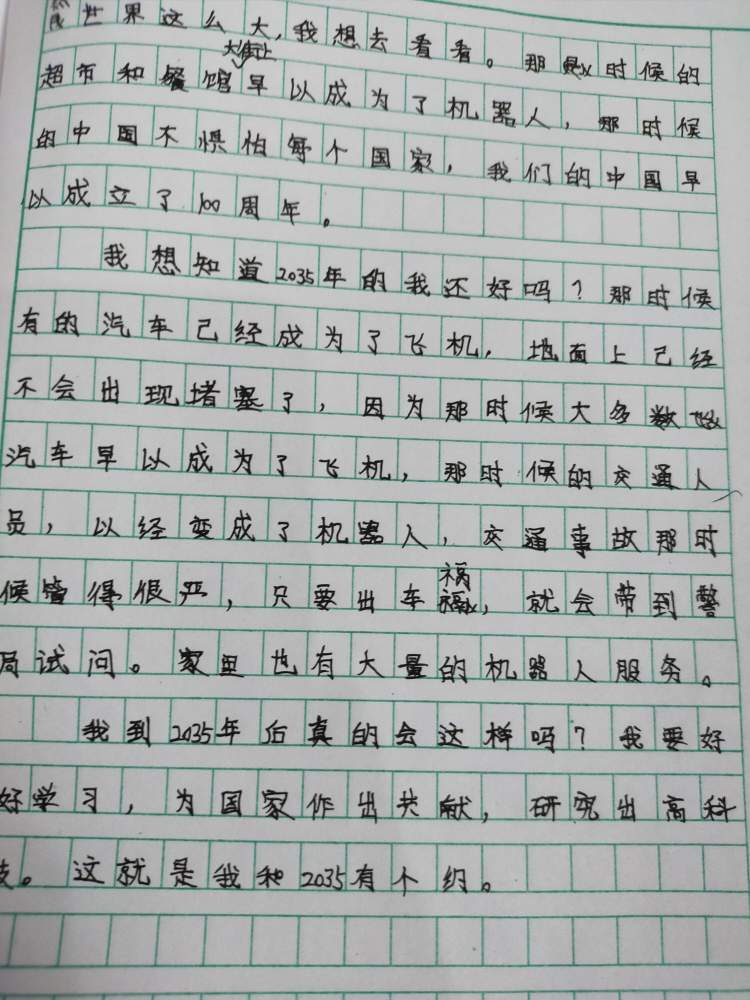 世界这么大，我想去看看。那时候的
大街上
超市和餐馆早以成为了机器人，那时候
的中国不惧怕每个国家，我们的中国早
以成立了100周年。
我想知道2035年的我还好吗？那时候
有的汽车已经成为了飞机，地面上已经
不会出现堵塞了，因为那时候大多数
汽车早以成为了飞机，那时候的交通人
员，以经变成了机器人，交通事故那时
候管得很严，只要出车祸，就会带到警
局试问。家里也有大量的机器人服务。
我到2035年后真的会这样吗？我要好
好学习，为国家作出共献，研究出高科
技。这就是我和2035有个约。